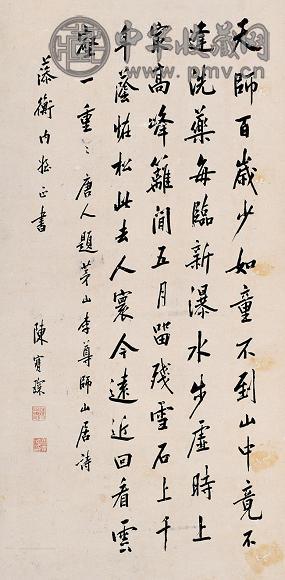 中宝收藏网
www.pmv.cn
天師百歲少如童不到山中竟不
逢洗藥每臨新瀑水步虛時上
㝡高峰籬間五月畱殘雪石上千
年蔭怪松此去人寰今遠近回看雲
壑一重〻唐人題茅山李尊師山居詩
衡内姪正書
陳寶琛